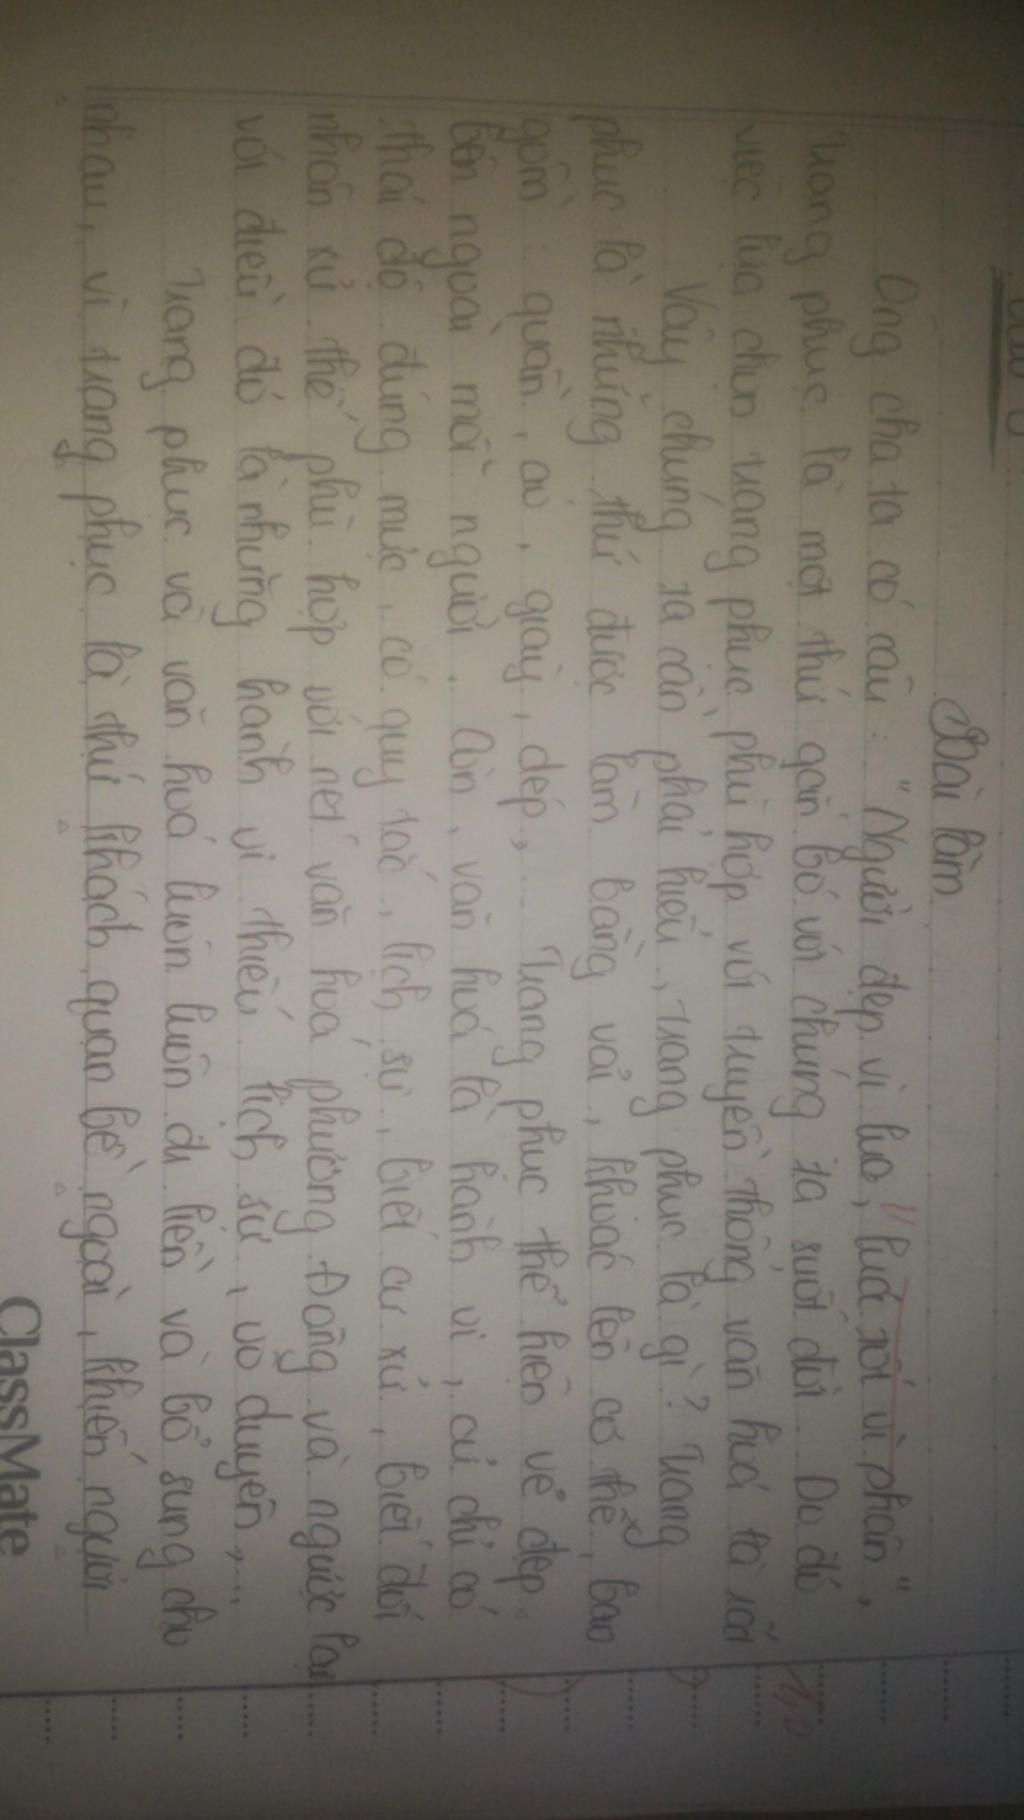 Bài làm
Ông cha ta có câu: "Người đẹp vì lụa, lúa tốt vì phân",
trang phục là một thứ gắn bó với chúng ta suốt đời. Do đó
việc lựa chọn trang phục phù hợp với truyền thống văn hoá là rất
Vậy chúng ta cần phải hiểu, trang phục là gì? Trang
phục là những thứ được làm bằng vải, khoác lên cơ thể, bao
gồm: quần, áo, giày, dép,... Trang phục thể hiện vẻ đẹp
bên ngoài mỗi người. Còn, văn hoá là hành vi, cử chỉ có
thái độ đúng mực, có quy tắc, lịch sự, biết cư xử, biết đối
nhân xử thế phù hợp với nét văn hoá phương Đông và ngược lại
với điều đó là những hành vi thiếu lịch sự, vô duyên,...
Trang phục và văn hoá luôn luôn đi liền và bổ sung cho
nhau, vì trang phục là thứ khách quan bề ngoài, khiến người
ClassMate